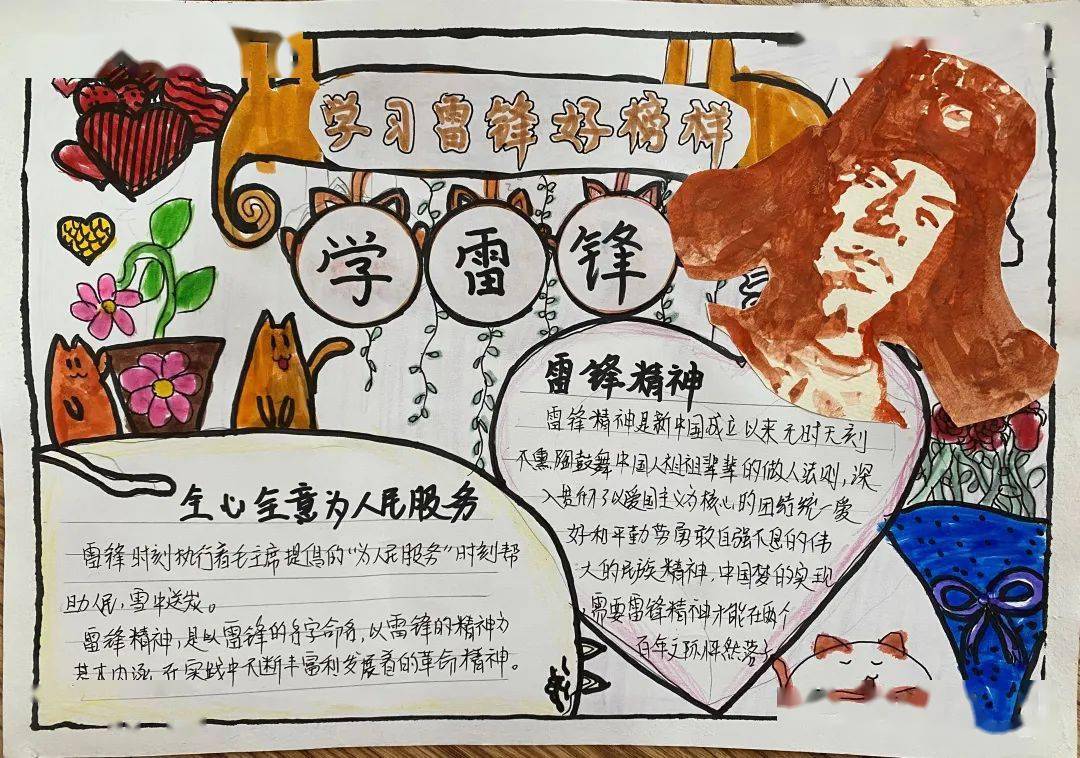 学习雷锋好榜样
学雷锋
雷锋精神
雷锋精神是新中国成立以来无时无刻
不熏陶鼓舞中国人祖祖辈辈的做人法则,深
入贯彻了以爱国主义为核心的团结统一爱
好和平勤劳勇敢自强不息的伟
大的民族精神,中国梦的实现
需要雷锋精神才能在两个
百年之际怦然落
全心全意为人民服务
雷锋时刻执行着毛主席提倡的“为人民服务”时刻帮
助人民,雪中送炭。
雷锋精神,是以雷锋的名字命名,以雷锋的精神为
基本内涵 在实践中不断丰富和发展着的革命精神。